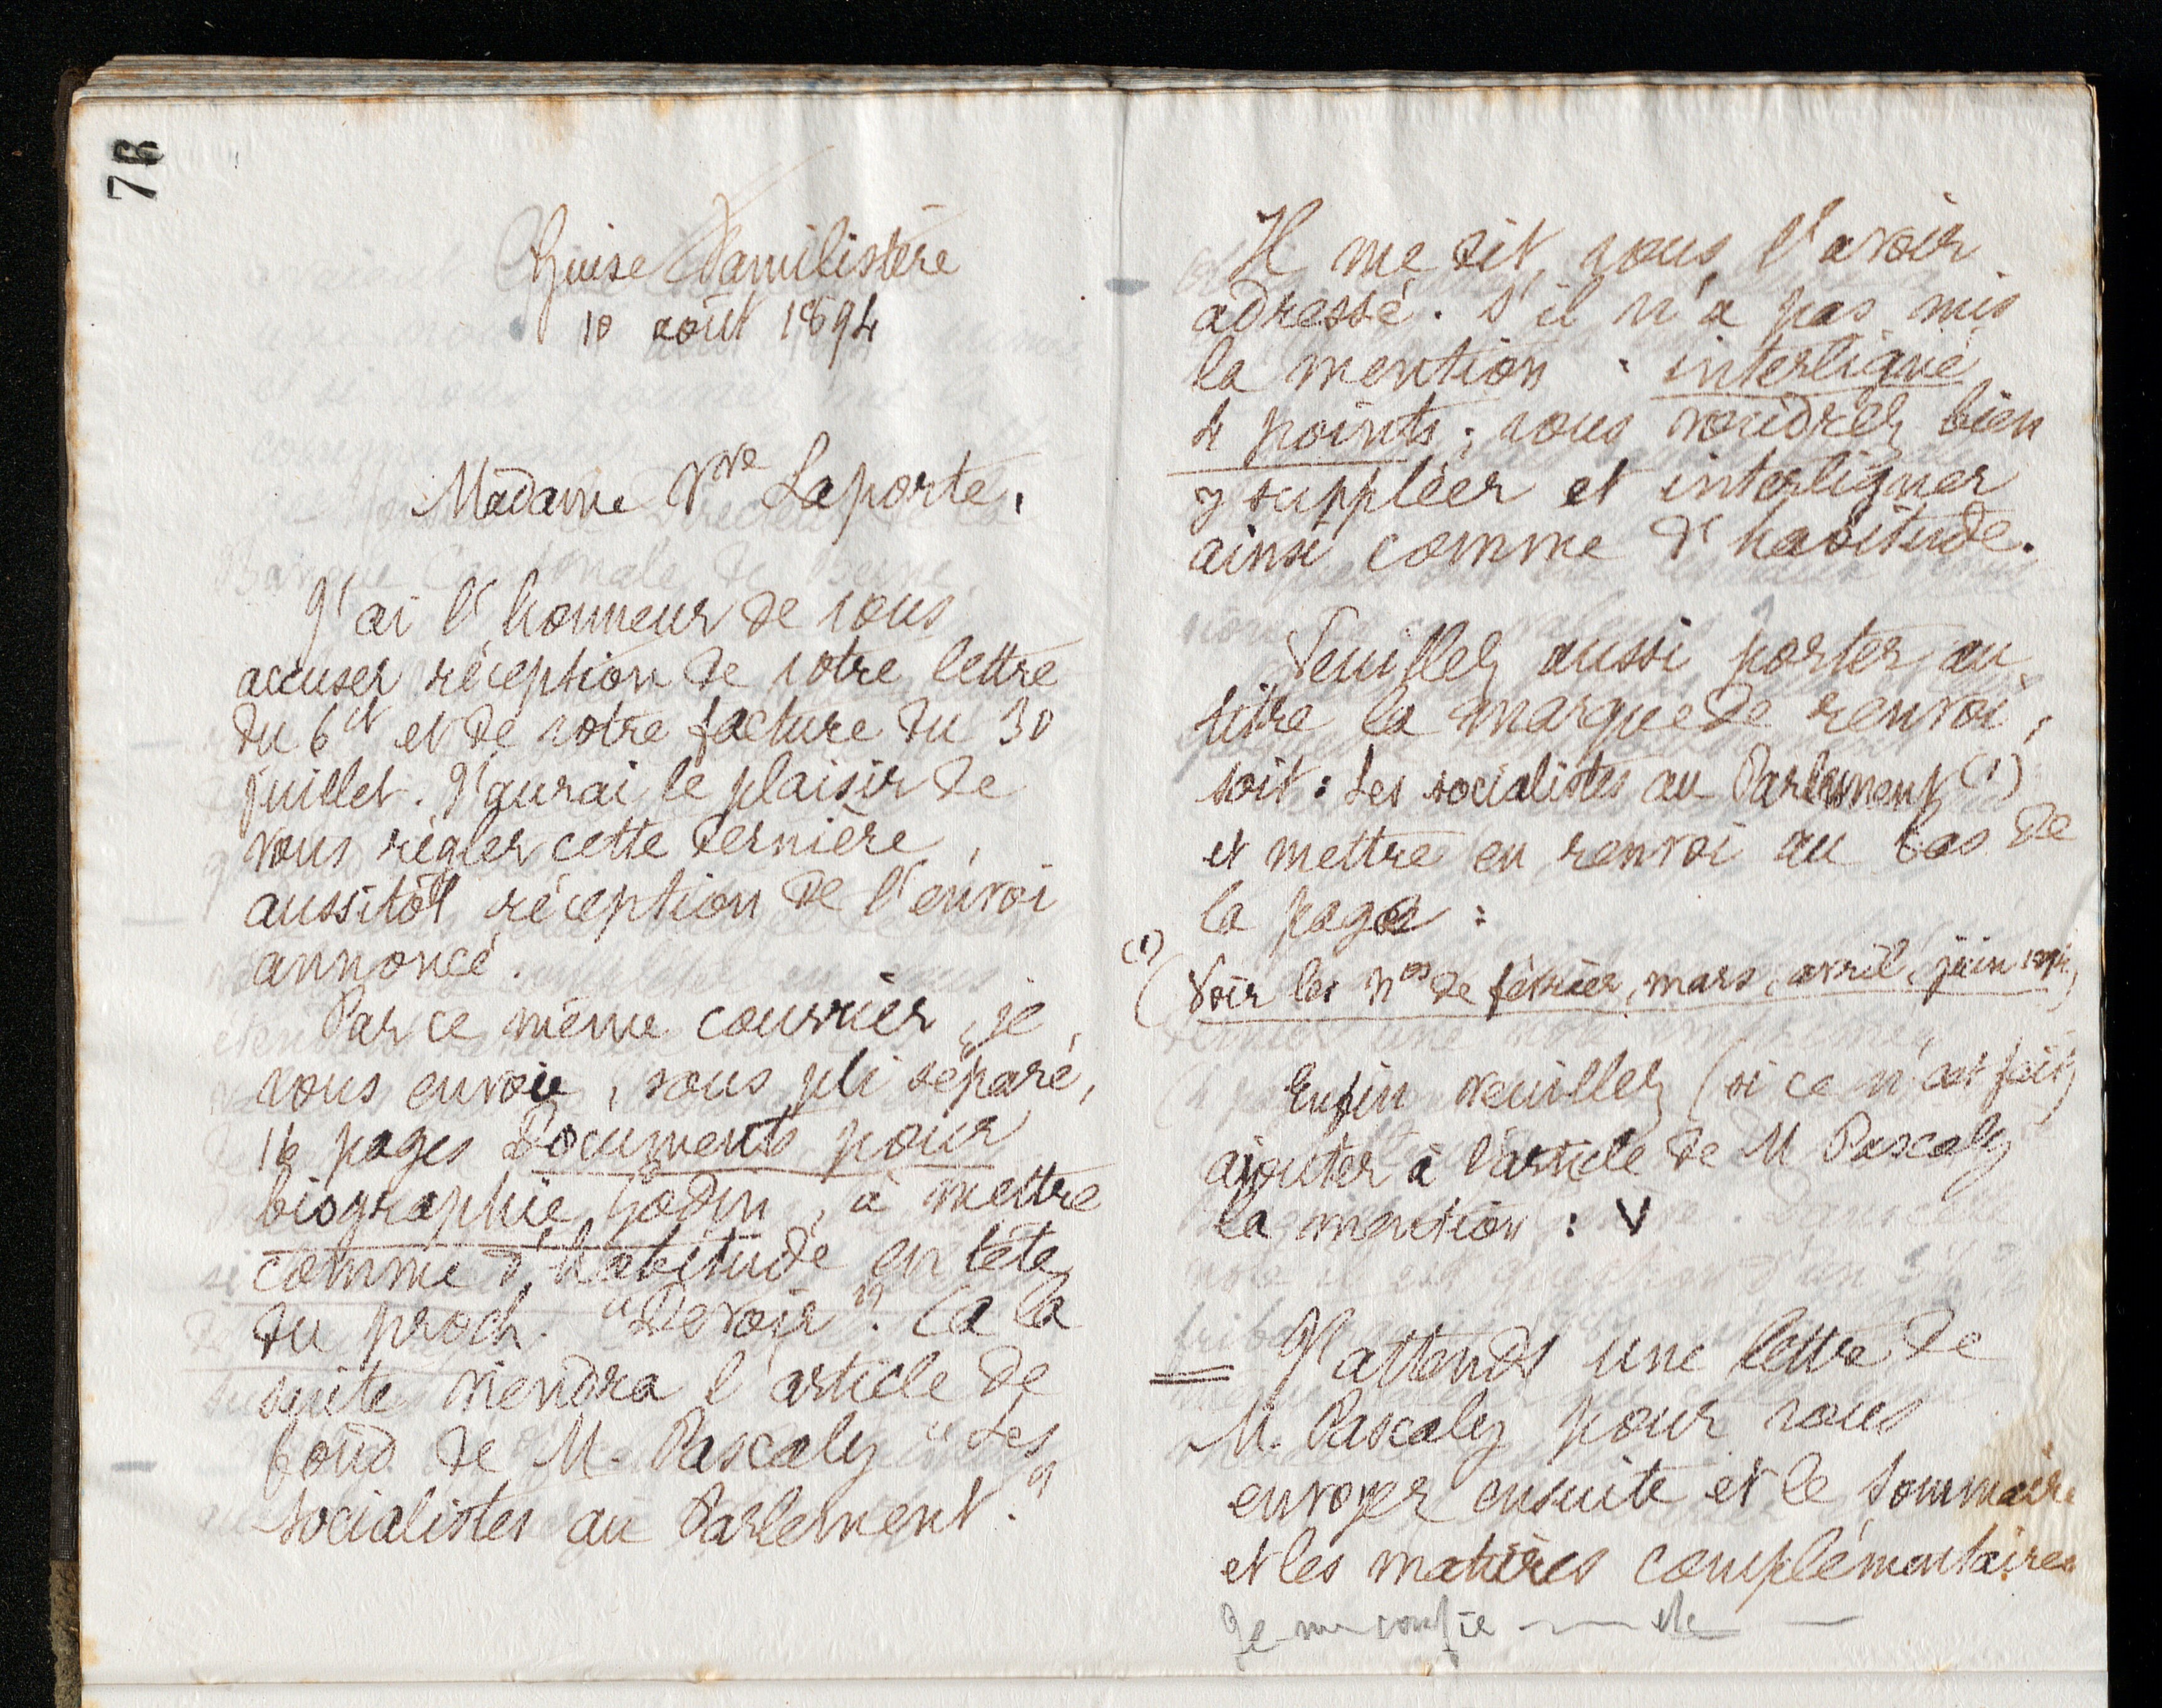 76
Guise Familistère
10 août 1894
Madame Vve Laporte,
J'ai l'honneur de vous
accuser réception de votre lettre
du 6 ct et de votre facture du 30
juillet. J'aurai le plaisir de
vous régler cette dernière,
aussitôt réception de l'envoi
annoncé.
Par ce même courrier, je
vous envoie, sous pli séparé,
16 pages Documents pour
biographie Godin, à mettre
comme d'habitude en tête
du proch. "Devoir". (à la
suite viendra l'article de
fond de M. Pascaly "Les
socialistes au Parlement."
Il me dit vous l'avoir
adressé. S'il n'a pas mis
la mention : interligné
4 points, vous voudrez bien
y suppléer et interligner
ainsi comme d'habitude.
Veuillez aussi porter au
titre la marque de renvoi,
soit : Les socialistes au Parlement (1)
et mettre en renvoi au bas de
la page :
(1)
(Voir les nos de février, mars, avril, juin)
Enfin veuillez (si ce n'est fait)
ajouter à l'article de M Pascaly
la mention : V
= J'attends une lettre de
M. Pascaly pour vous
envoyer ensuite et le sommaire
et les matières complémentaires
Je me confie